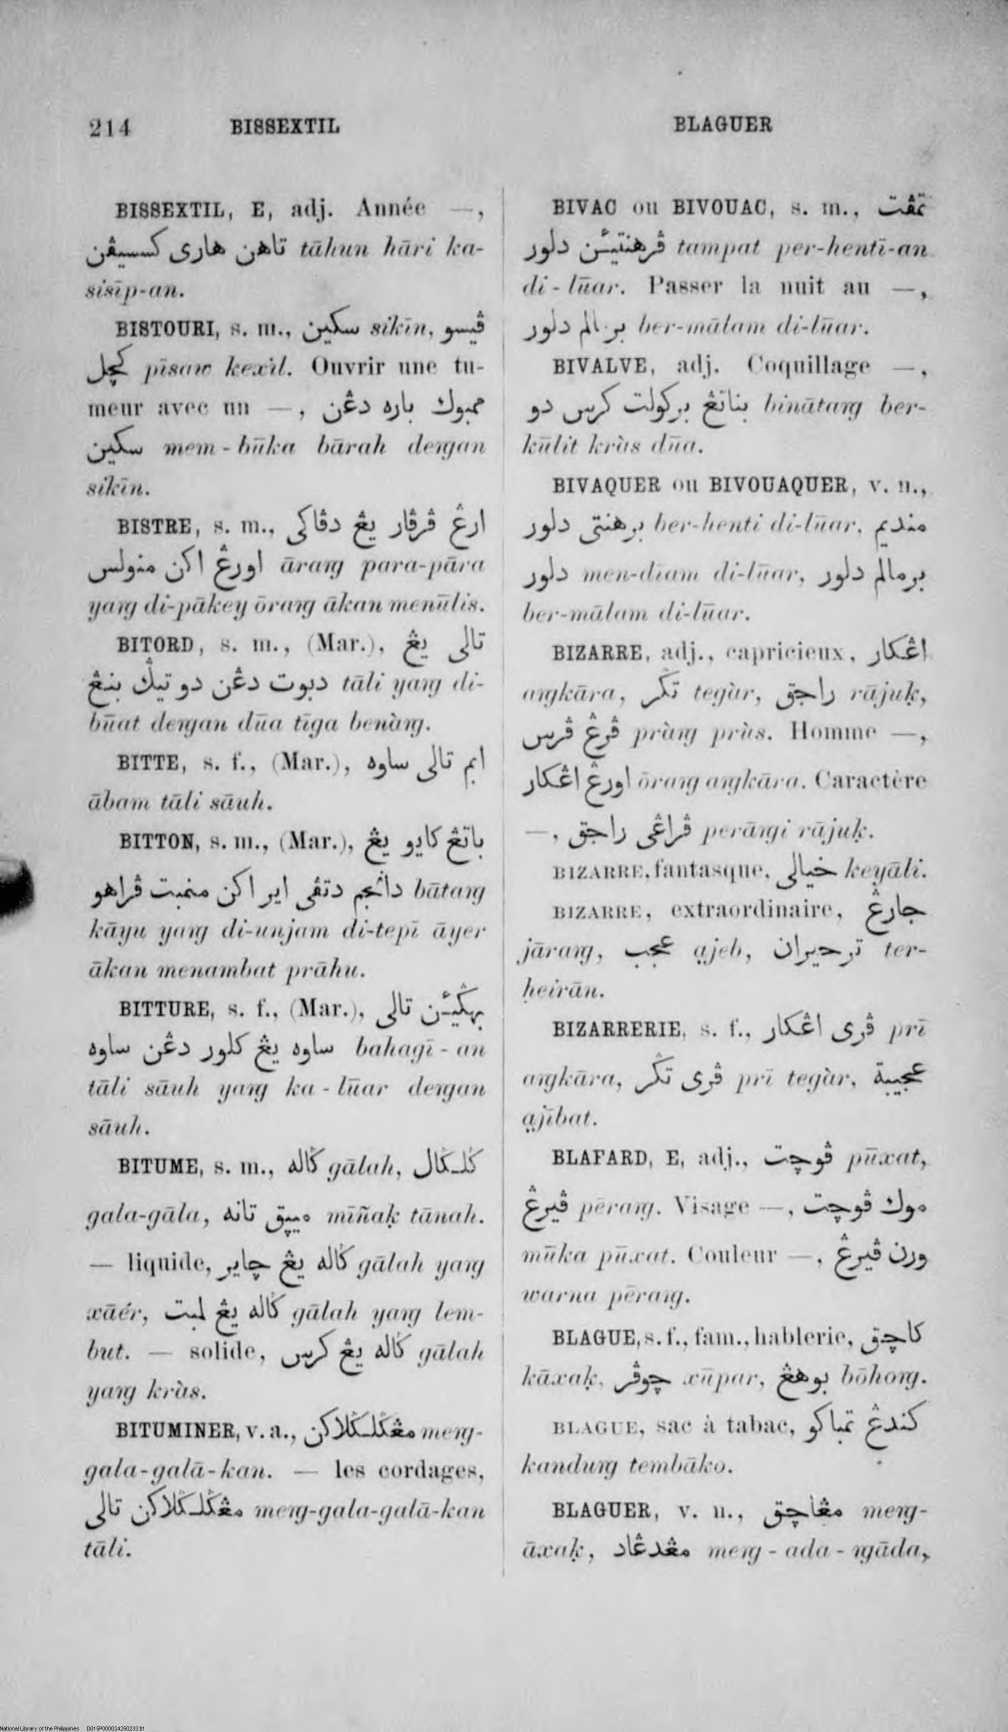 214 BISSEXTIL BLAGUER
BISSEXTIL, E, adj. Année —,
تاهن هاري كسسيڤن tāhun hāri ka-
sisīp-an.
BISTOURI, s. m., سكين sikīn, ڤيسو
كچل pīsaw kexil. Ouvrir une tu-
meur avec un —, ممبوك باره دڠن
سكين mem-būka bārah deŋgan
sikīn.
BISTRE, s. m., ارڠ ڤرڤار يڠ دڤاكى
اورڠ اكن منولس āraŋ para-pāra
yaŋ di-pākey ōraŋ ākan menūlis.
BITORD, s. m., (Mar.), تالى يڠ
دبوت دڠن دو تيݢ بنڠ tāli yaŋ di-
būat deŋgan dūa tīga benàŋ.
BITTE, s. f., (Mar.), ابم تالى ساوه
ābam tāli sāuh.
BITTON, s. m., (Mar.), باتڠ كايو يڠ
دانجم دتڤى اير اكن منمبت ڤراهو bātaŋ
kāyu yaŋ di-unjam di-tepī āyer
ākan menambat prāhu.
BITTURE, s. f., (Mar.), بهݢيئن تالى
ساوه يڠ كلور دڠن ساوه bahagī-an
tāli sāuh yaŋ ka-lūar deŋgan
sāuh.
BITUME, s. m., ݢاله gālah, ݢلݢال
gala-gāla, مييق تانه mīñaḳ tānah.
— liquide, ݢاله يڠ چاير gālah yaŋ
xāér, ݢاله يڠ لمبت gālah yaŋ lem-
but. — solide, ݢاله يڠ كرس gālah
yaŋ kràs.
BITUMINER, v. a., مڠݢلݢلاكن meŋ-
gala-galā-kan. — les cordages,
مڠݢلݢلاكن تالى meŋ-gala-galā-kan
tāli.
BIVAC ou BIVOUAC, s. m., تمڤت
ڤرهنتيئن دلور tampat per-hentī-an
di-lūar. Passer la nuit au —,
برمالم دلور ber-mālam di-lūar.
BIVALVE, adj. Coquillage —,
بناتڠ بركولت كرس دو binātaŋ ber-
kūlit kràs dūa.
BIVAQUER ou BIVOUAQUER, v. n.,
برهنتى دلور ber-henti di-lūar, منديم
دلور men-dīam di-lūar, برمالم دلور
ber-mālam di-lūar.
BIZARRE, adj., capricieux, اڠكار
aŋkāra, تݢر tegàr, راجق rājuḳ,
ڤرڠ ڤرس pràŋ prùs. Homme —,
اورڠ اڠكار ōraŋ aŋkāra. Caractère
—, ڤراڠى راجق perāŋi rājuḳ.
BIZARRE, fantasque, خيالى keyāli.
BIZARRE, extraordinaire, جارڠ
jāraŋ, عجب ạjeb, ترحيران ter-
ḥeirān.
BIZARRERIE, s. f., ڤرى اڠكار prī
aŋkāra, ڤرى تݢر prī tegàr, عجيبة
ạjībat.
BLAFARD, E, adj., ڤوچت pūxat,
ڤيرڠ pēraŋ. Visage —, موك ڤوچت
mūka pūxat. Couleur —, ورن ڤيرڠ
warna pēraŋ.
BLAGUE, s. f., fam., hablerie, كاچق
kāxaḳ, چوڤر xūpar, بوهڠ bōhoŋ.
BLAGUE, sac à tabac, كندڠ تمباكو
kanduŋ tembāko.
BLAGUER, v. n., مڠاچق meŋ-
āxaḳ, مڠدڠاد meŋ-ada-ŋāda,
National Library of the Philippines